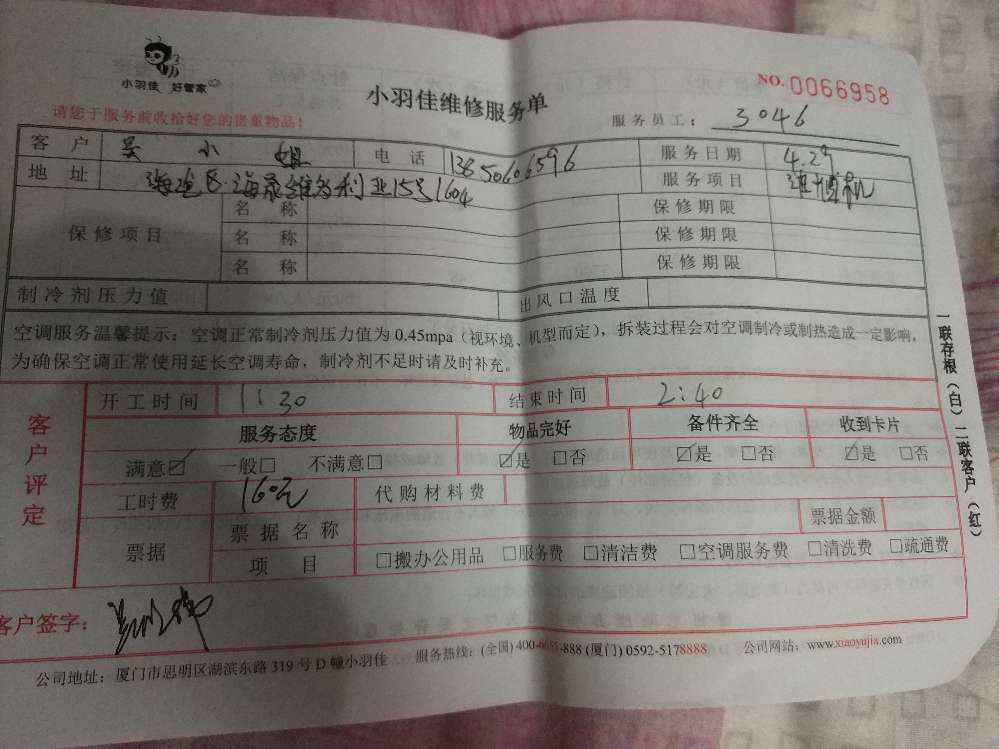 小羽佳 好管家
小羽佳维修服务单
NO. 0066958
请您于服务前收拾好您的贵重物品!
服务员工: 3046
客户 吴小姐 电话 13850606596 服务日期 4.29
地址 海沧区·海晟维多利亚15号1604 服务项目
保修项目 名称 保修期限
名称 保修期限
名称 保修期限
制冷剂压力值 出风口温度
空调服务温馨提示: 空调正常制冷剂压力值为 0.45mpa (视环境、机型而定), 拆装过程会对空调制冷或制热造成一定影响,
为确保空调正常使用延长空调寿命, 制冷剂不足时请及时补充。
客户评定
开工时间 1:30 结束时间 2:40
服务态度 物品完好 备件齐全 收到卡片
满意☑ 一般☐ 不满意☐ ☑是 ☐否 ☑是 ☐否 ☑是 ☐否
工时费 160元 代购材料费
票据 票据名称 票据金额
项目 ☐搬办公用品 ☐服务费 ☐清洁费 ☐空调服务费 ☐清洗费 ☐疏通费
客户签字:
公司地址: 厦门市思明区湖滨东路 319 号 D 幢小羽佳 服务热线: (全国) 400-6655-888 (厦门) 0592-5178888 公司网站: www.xiaoyujia.com
一联存根(白) 二联客户(红)